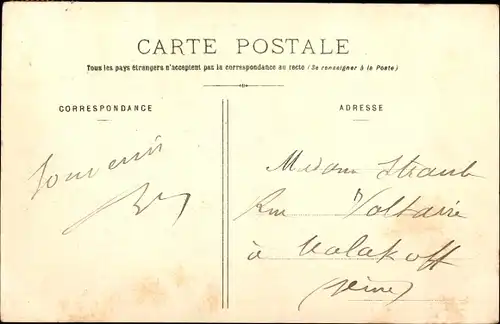 CARTE POSTALE
Tous les pays étrangers n'acceptent pas la correspondance au recto (Se renseigner à la Poste)
CORRESPONDANCE
ADRESSE
Souvenir
Madame Straub
Rue Voltaire
à Malakoff
(Seine)